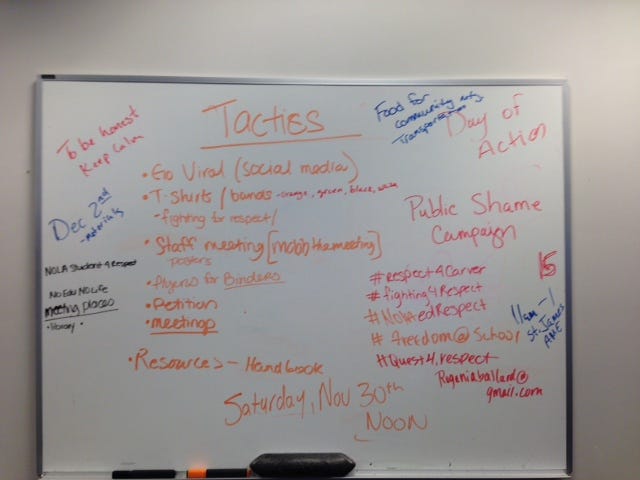 To be honest
Keep Calm
Dec 2nd
- materials
NOLA Student 4 Respect
No Edu No Life
meeting places
• library •
Tactiss
• Go Viral (social media)
• T-Shirts / bands - orange, green, black,
- fighting for respect/
• Staff meeting [mobb the meeting]
posters
• flyers for Binders
• Petition
• meetings
• Resources - Handbook
Saturday, Nov 30th
NOON
Food for
community mtg
Transportation
Day of
Action
Public Shame
Campaign
#respect4Carver
#fighting4Respect
#NolaedRespect
#freedom@School
#Quest4.respect
Rugeniaballard@
gmail.com
15
11am - 1
St. James
AME